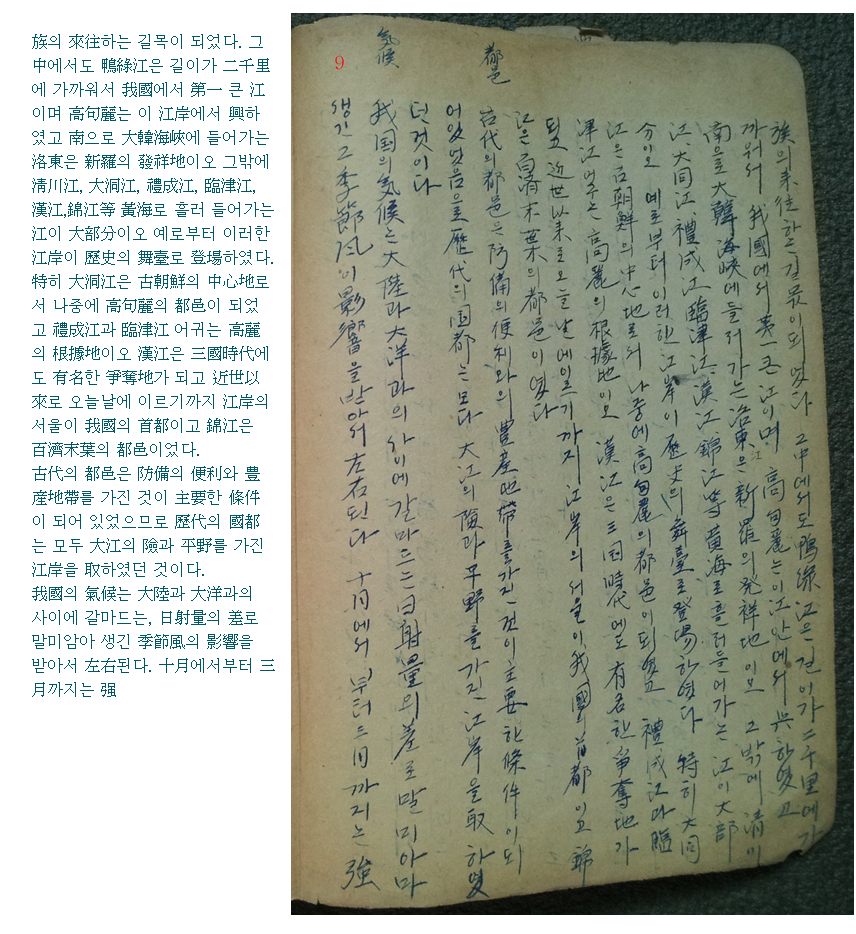 族의 來往하는 길목이 되었다. 그
中에서도 鴨綠江은 길이가 二千里
에 가까워서 我國에서 第一 큰 江
이며 高句麗는 이 江岸에서 興하
였고 南으로 大韓海峽에 들어가는
洛東은 新羅의 發祥地이오 그밖에
淸川江, 大洞江, 禮成江, 臨津江,
漢江,錦江等 黃海로 흘러 들어가는
江이 大部分이오 예로부터 이러한
江岸이 歷史의 舞臺로 登場하였다.
特히 大洞江은 古朝鮮의 中心地로
서 나중에 高句麗의 都邑이 되었
고 禮成江과 臨津江 어귀는 高麗
의 根據地이오 漢江은 三國時代에
도 有名한 爭奪地가 되고 近世以
來로 오늘날에 이르기까지 江岸의
서울이 我國의 首都이고 錦江은
百濟末葉의 都邑이었다.
古代의 都邑은 防備의 便利와 豊
産地帶를 가진 것이 主要한 條件
이 되어 있었으므로 歷代의 國都
는 모두 大江의 險과 平野를 가진
江岸을 取하였던 것이다.
我國의 氣候는 大陸과 大洋과의
사이에 갈마드는, 日射量의 差로
말미암아 생긴 季節風의 影響을
받아서 左右된다. 十月에서부터 三
月까지는 强
9
族의 來往하는 길목이 되였다 그中에서도 鴨綠江은 길이가 二千里에가
까워서 我國에서 第一 큰 江이며 高句麗는 이 江岸에서 興하였고
南으로 大韓海峽에 들러가는 洛東江은 新羅의 発祥地이오 그밖에 淸川
江、大同江、禮成江 臨津江、漢江 錦江等 黃海로 흘러들어가는 江이 大部
分이오 예로부터 이러한 江岸이 歷史의 舞臺로 登場하였다 特히 大同
江은 古朝鮮의 中心地로서 나중에 高句麗의 都邑이 되였고 禮成江과 臨
津江 어구는 高麗의 根據地이오 漢江은 三国時代에도 有名한 爭奪地가
되고 近世以来로 오늘날에 이르기까지 江岸의 서울이 我國의 首都이고 錦
江은 百濟末葉의 都邑이였다
都邑
古代의 都邑은 防備의 便利와의 豊産地帶를 가진 것이 主要한 條件이되
어있엇음으로 歷代의 国都는 모다 大江의 險과 平野를 가진 江岸을 取하엿
던것이다
気候
我国의 氣候는 大陸과 大洋과의 사이에 갈마드는 日射量의 差로 말미아마
생긴 그 季節风이 影響을 받아서 左右된다 十月에서 부터 三月까지는 強